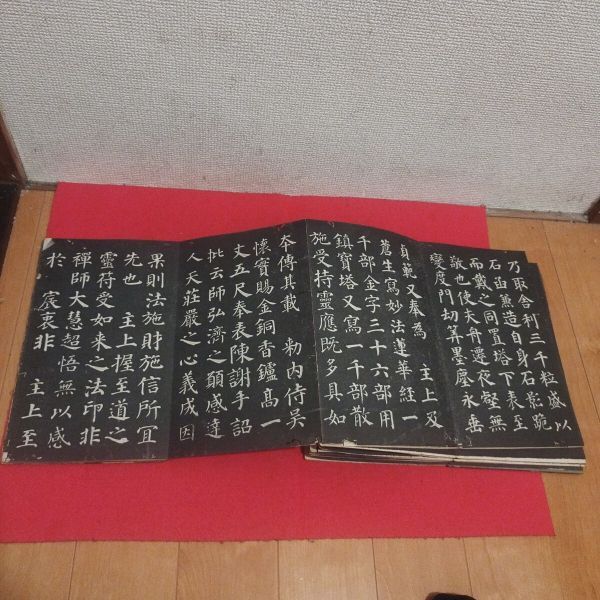 乃取舍利三千粒盛以
石函兼造自身石影跪
而戴之同置塔下表至
敬也使夫舟遷夜壑無
變度門劫算墨塵永垂
貞範又奉為 主上及
蒼生寫妙法蓮華經一
千部金字三十六部用
鎮寶塔又寫一千部散
施受持靈應既多具如
本傳其載 勅內侍吳
懷實賜金銅香鑪高一
丈五尺奉表陳謝手詔
批云師弘濟之願感達
人天莊嚴之心義成因
果則法施財施信所宜
先也 主上握至道之
靈符受如來之法印非
禪師大慧超悟無以感
於 宸衷非 主上至